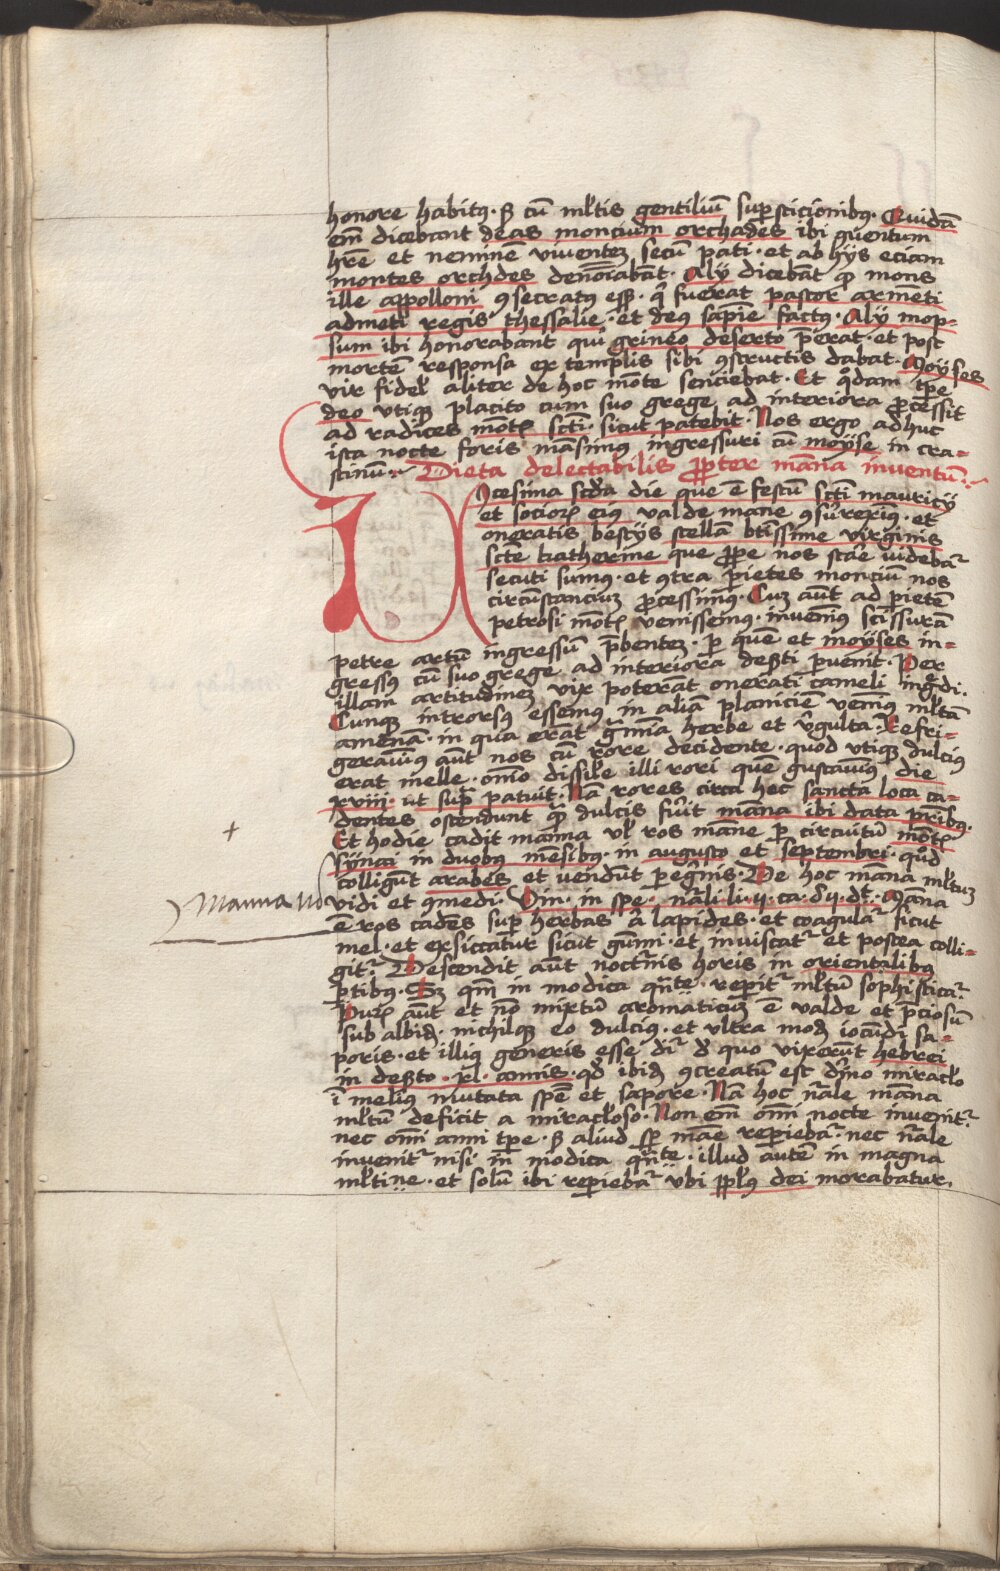 honore habitꝰ · Sꝫ cū ml̄tis gentiliū suꝑsticionibꝰ · Quidā
em̄ dicebant deas moncium orchades ibi
hr̄e et neminē viventeꝫ secū pati · et ab hijs eciam
montes orchdes denōiabāt · Alij dicebāt ꝙ mons
ille appolloni ꝯsecratꝰ esꝫ · qͥ fuerat pastor armēti
admeti regis thessalie · et deꝰ sapīe factꝰ · Alij mop-
sum ibi honorabant qui grineo deserto p̄erat · et post
mortē responsa ex templis sibi ꝯstructis dabat · Moyses
vir fidel̄ aliter de hoc mōte senciebat · Et qͦdam tꝑe
deo vtiqꝫ placito cum suo grege ad interiora ꝓcessit
ad radices mōtꝭ scti · sicut patebit · Nos ergo adhuc
ista nocte foris māsimus ingressuri cū moyse in cra-
stinū · Dieta delectabilis ꝓpter māna inventū ·
Vicesima scd̄a die que ē festū scti mauricij
et socioꝝ eiꝰ valde mane ꝯsurreximꝰ · et
oneratis bestijs stellā btissime virginis
scte katherine que ꝓpe nos stare videbaꝉ
secuti sumꝰ · et ꝯtra parietes monciū nos
circūstanciuꝫ ꝓcessimꝰ · Cuꝫ aūt ad parietē
petrosi mōtꝭ venissemꝰ · invenimꝰ scissurā
petre artū ingressū p̄benteꝫ · ꝑ quē et moyses in-
gressꝰ cū suo grege ad interiora desti ꝑvenit · Per
illam artitudineꝫ vix poterāt onerati cameli ingͣdi ·
Cunqꝫ introrsꝰ essemꝰ in aliā planiciē venimꝰ ml̄tā
amenā · in qua erāt gͣmina herbe et vͥgulta · Refri-
geravimꝰ aūt nos cū rore decidente · quod vtiqꝫ dulciꝰ
erat melle · omīo dissil̄e illi rori quē gustavimꝰ die
xviij · ut supͣ patuit · Nā rores circa hec sancta loca ca-
dentes ostendunt ꝙ dulcis fuͥit māna ibi data pr̄ibꝰ ·
Et hodie cadit manna vl̄ ros mane ꝑ circuitū mōtꝭ
synai in duobꝰ mēsibꝰ · in augusto et septembri · quͦd
colligūt arabes et vendūt ꝑegͥnis · De hoc māna ml̄tum
Manna
vidi et ꝯmedi · Vin · in spe · nāli · li · ij · ca · 87 · dt · Māna
ē ros cadēs suꝑ herbas aͭ lapides · et coagulaꝉ sicut
mel · et exsiccatur sicut gūmi · et inviscatꝉ et postea colli-
gitꝉ · Descendit aūt noctͥnis horis in orientalibꝰ
ꝑtibꝰ · Sꝫ qm̄ in modica qͣn̄te repitꝉ ml̄tū sophisticaꝉ ·
Puꝝ aūt et nō mixtū aromaticum ē valde et p̄ciosū
sub albidꝫ · nichilqꝫ eo dulciꝰ · et vltra modꝫ iocūdi sa-
poris · et illiꝰ generis esse diꝉ d̄ quo vixerūt hebrei
in desto · xl · annis · qd̄ ibidꝫ ꝯcreatū est dīno miracl̄o
ī meliꝰ mutata spē et sapore · Nā hoc nͣale māna
ml̄tū deficit a miracl̄oso · Non em̄ omni nocte invenitꝉ
nec omni anni tꝑe · Sꝫ aliud sꝑ mane reꝑiebaꝉ · nec nͣale
invenitꝉ nisi in modica qͣn̄te · illud autē in magna
ml̄tine · et solū ibi reꝑiebaꝉ vbi ppl̄ꝰ dei morabatur ·